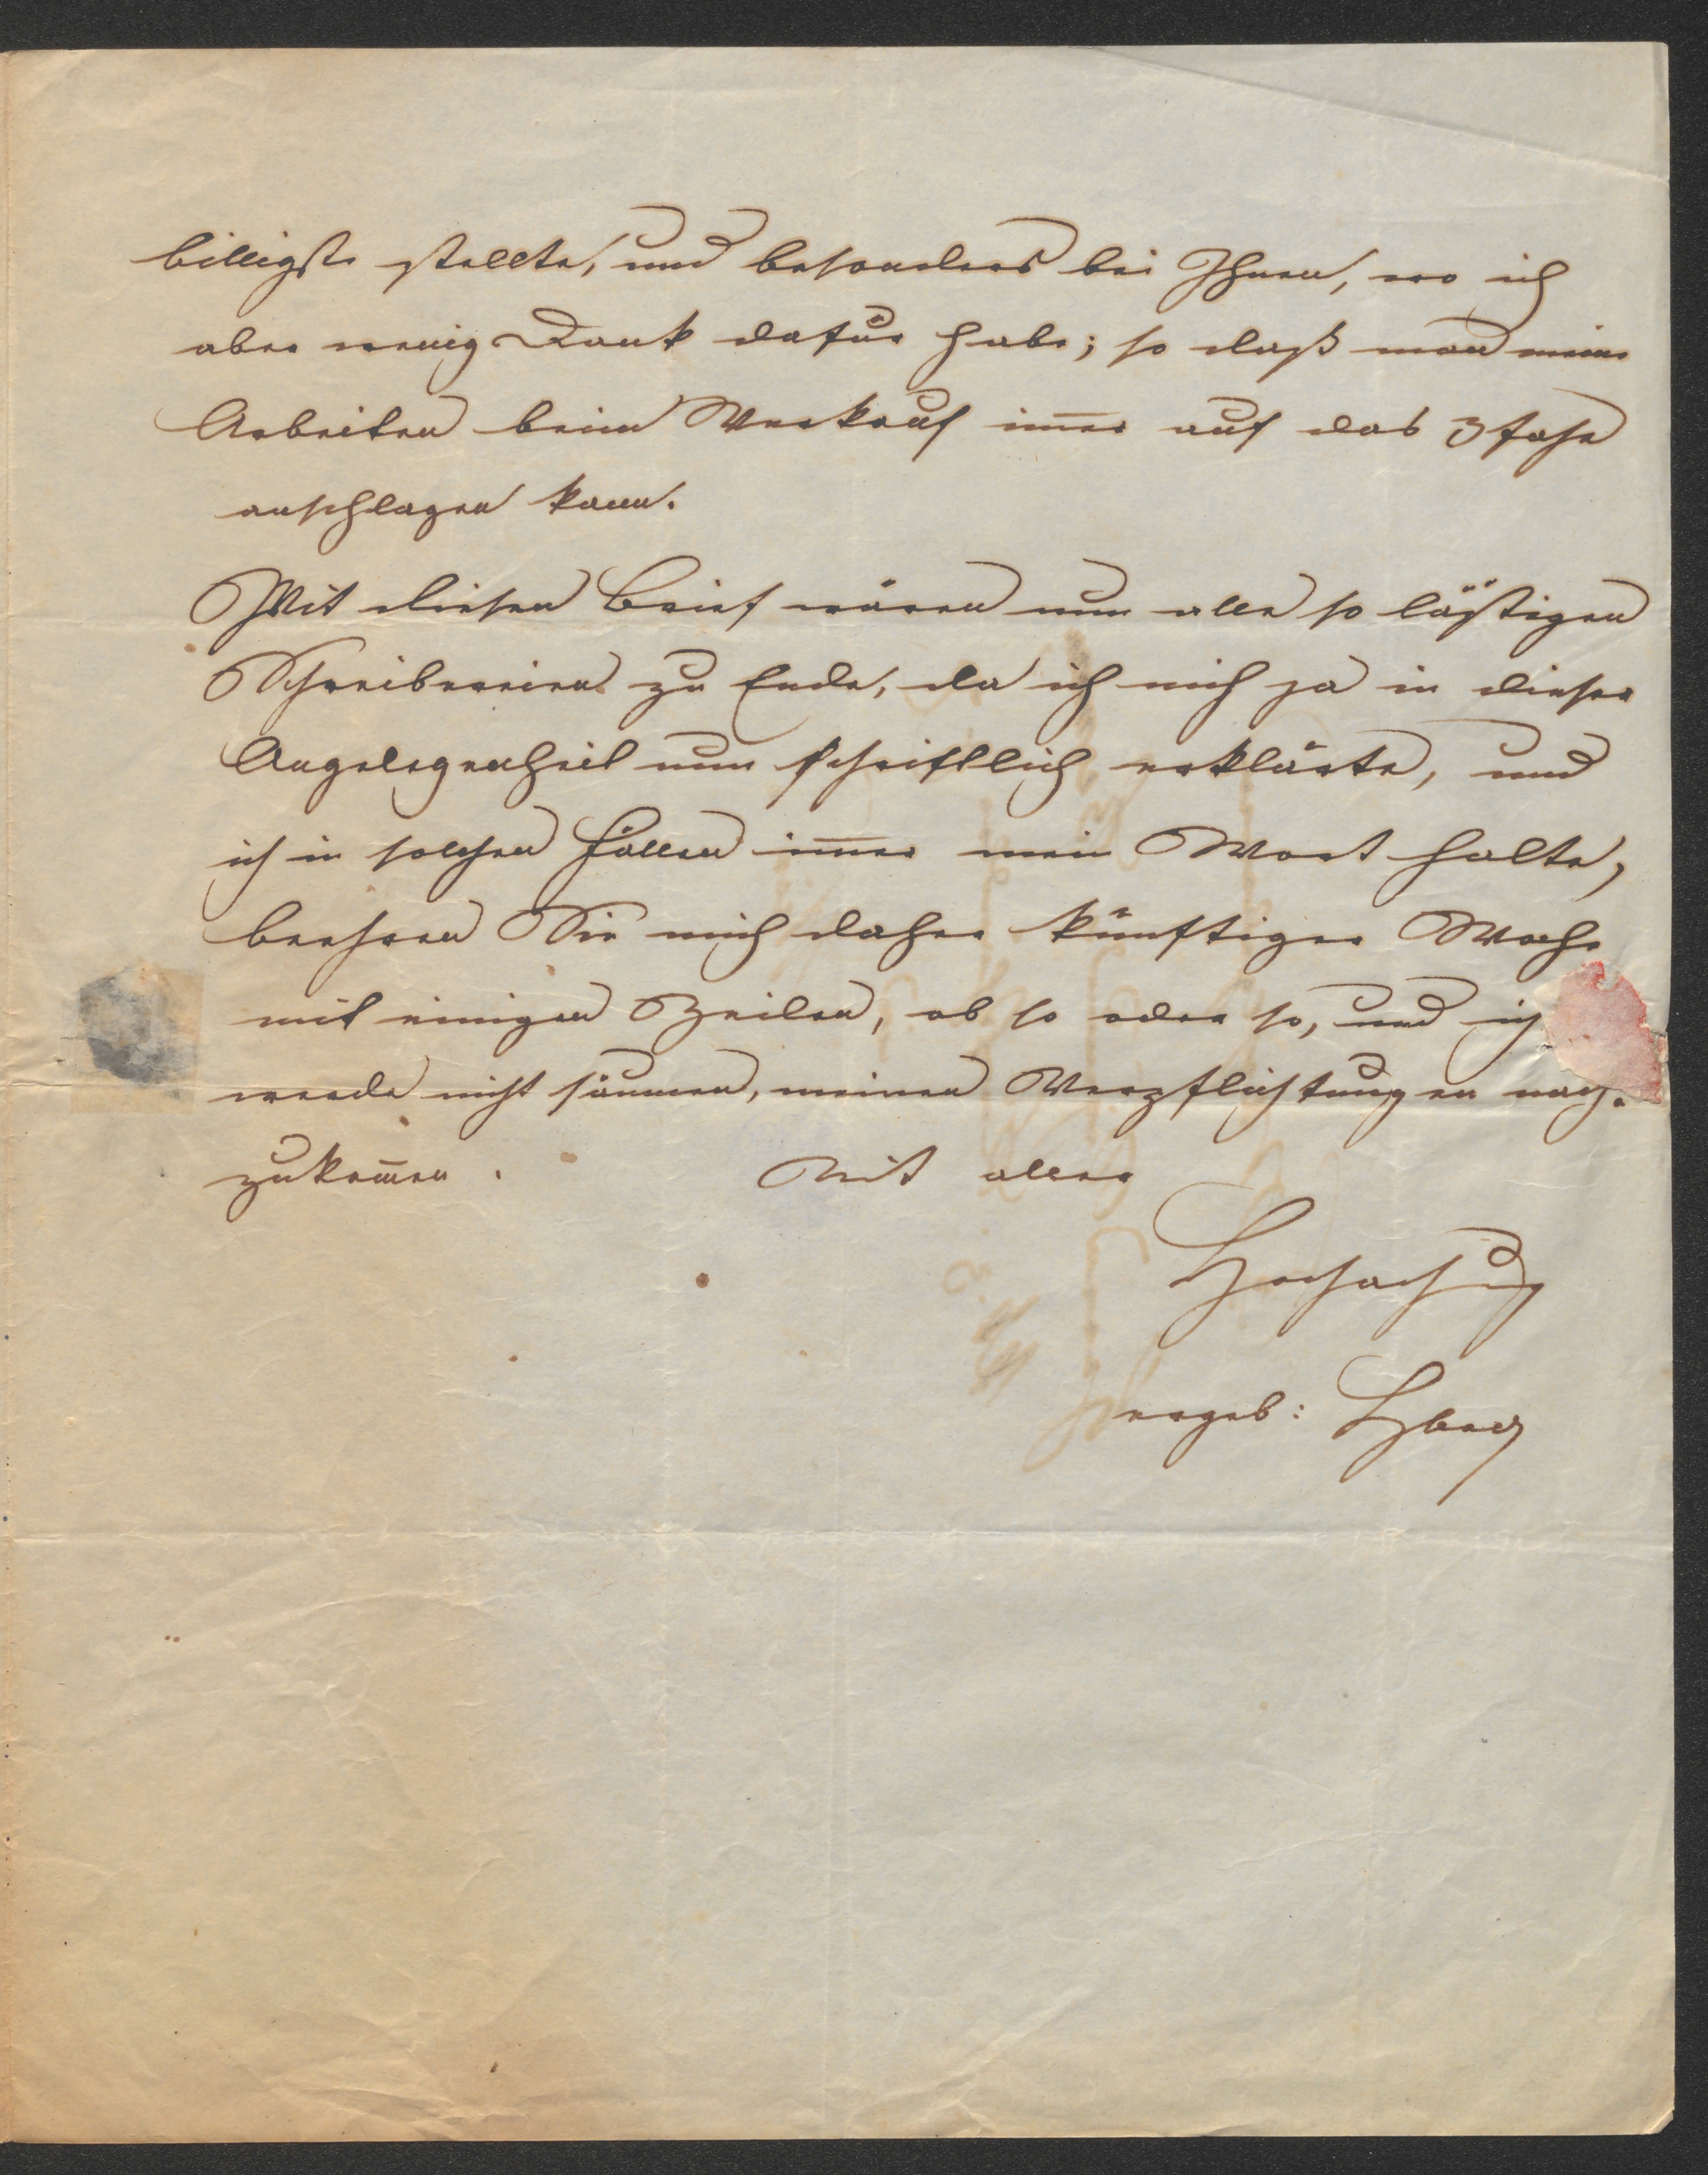 billigste stellte, und besonders bei Ihnen, wo ich
aber wenig Dank dafür habe; so daß man meine
Arbeiten beim Verkauf im̄er auf das 3fache
anschlagen kann.
Mit diesen Brief wären nun alle so lästigen
Schreibereien zu Ende, da ich mich ja in dieser
Angelegenheit nun schriftlich erklärte, und
ich in solchen Fällen im̄er mein Wort halte,
beehren Sie mich daher künftiger Woche
mit einigen Zeilen, ob so oder so, und ich
werde nicht säumen, meinen Verpflichtungen nach-
zukom̄en. Mit aller
Hochachtung
ergeb: